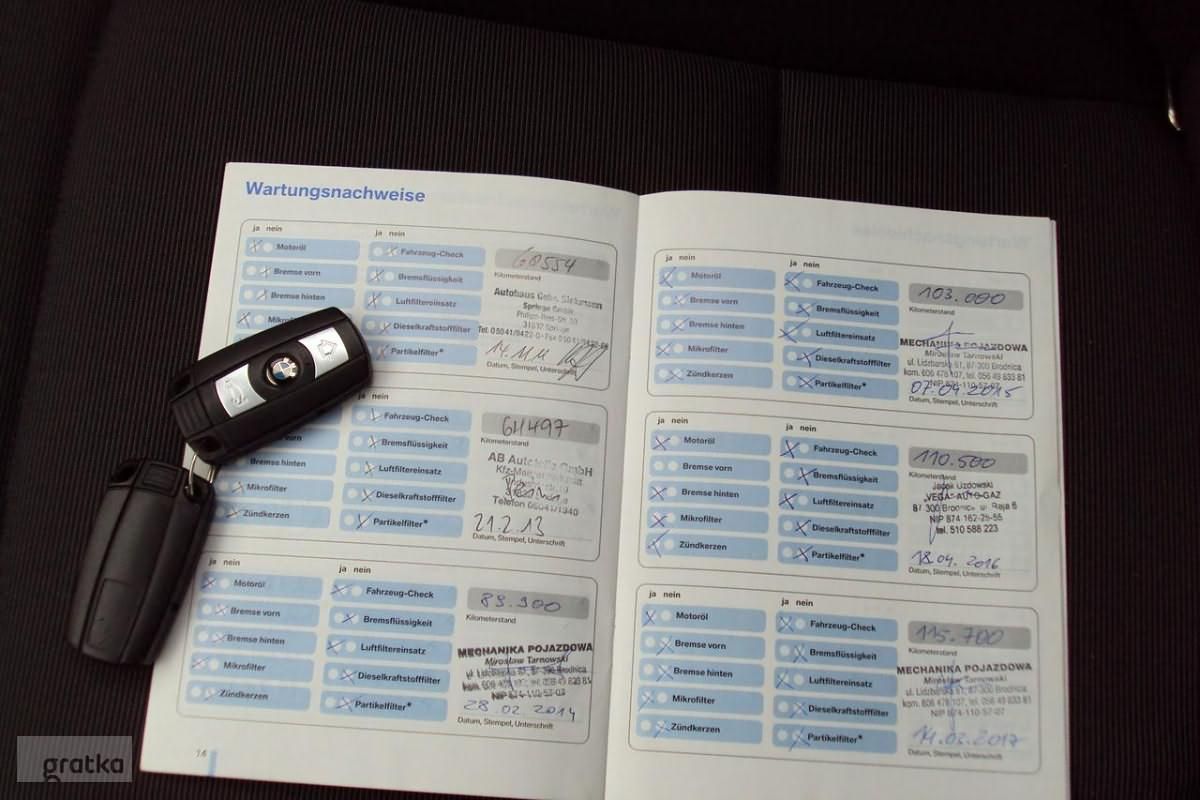 Wartungsnachweise
ja nein
ja nein
Motoröl
Fahrzeug-Check
60554
Bremse vorn
Bremsflüssigkeit
Kilometerstand
Bremse hinten
Luftfiltereinsatz
Autohaus Gebr.
Springe GmbH
31832 Springe
Dieselkraftstofffilter
Tel. 05041/9422-0
Partikelfilter*
14.11.11
Datum, Stempel, Unterschrift
ja nein
Fahrzeug-Check
Kilometerstand
Bremsflüssigkeit
AB GmbH
Bremse hinten
Luftfiltereinsatz
Mikrofilter
Dieselkraftstofffilter
Telefon 05041/1340
Zündkerzen
Partikelfilter*
21.2.13
Datum, Stempel, Unterschrift
ja nein
ja nein
Motoröl
Fahrzeug-Check
89.900
Bremse vorn
Bremsflüssigkeit
Kilometerstand
Bremse hinten
Luftfiltereinsatz
MECHANIKA POJAZDOWA
Mirosław Tarnowski
Mikrofilter
Dieselkraftstofffilter
NIP 874-110-57-07
Zündkerzen
Partikelfilter*
28.02.2014
Datum, Stempel, Unterschrift
14
ja nein
ja nein
Motoröl
Fahrzeug-Check
103.000
Bremse vorn
Bremsflüssigkeit
Kilometerstand
Bremse hinten
Luftfiltereinsatz
MECHANIKA POJAZDOWA
Mirosław Tarnowski
Mikrofilter
Dieselkraftstofffilter
ul. Lidzbarska 61, 87-300 Brodnica
kom. 606 478 107, tel. 056 49 833 81
Zündkerzen
Partikelfilter*
NIP 874-110-57-07
07.04.2015
Datum, Stempel, Unterschrift
ja nein
ja nein
Motoröl
Fahrzeug-Check
110.500
Bremse vorn
Bremsflüssigkeit
Kilometerstand
Bremse hinten
Luftfiltereinsatz
Jacek Uzdowski
VEGA-AUTO-GAZ
Mikrofilter
Dieselkraftstofffilter
87 300 Brodnica
NIP 874 162-25-55
tel. 510 588 223
Zündkerzen
Partikelfilter*
18.04.2016
Datum, Stempel, Unterschrift
ja nein
ja nein
Motoröl
Fahrzeug-Check
115.700
Bremse vorn
Bremsflüssigkeit
Kilometerstand
Bremse hinten
Luftfiltereinsatz
MECHANIKA POJAZDOWA
Mirosław Tarnowski
Mikrofilter
Dieselkraftstofffilter
ul. Lidzbarska 61, 87-300 Brodnica
kom. 606 478 107, tel. 056 49 833 81
NIP 874-110-57-07
Zündkerzen
Partikelfilter*
14.03.2017
Datum, Stempel, Unterschrift
gratka